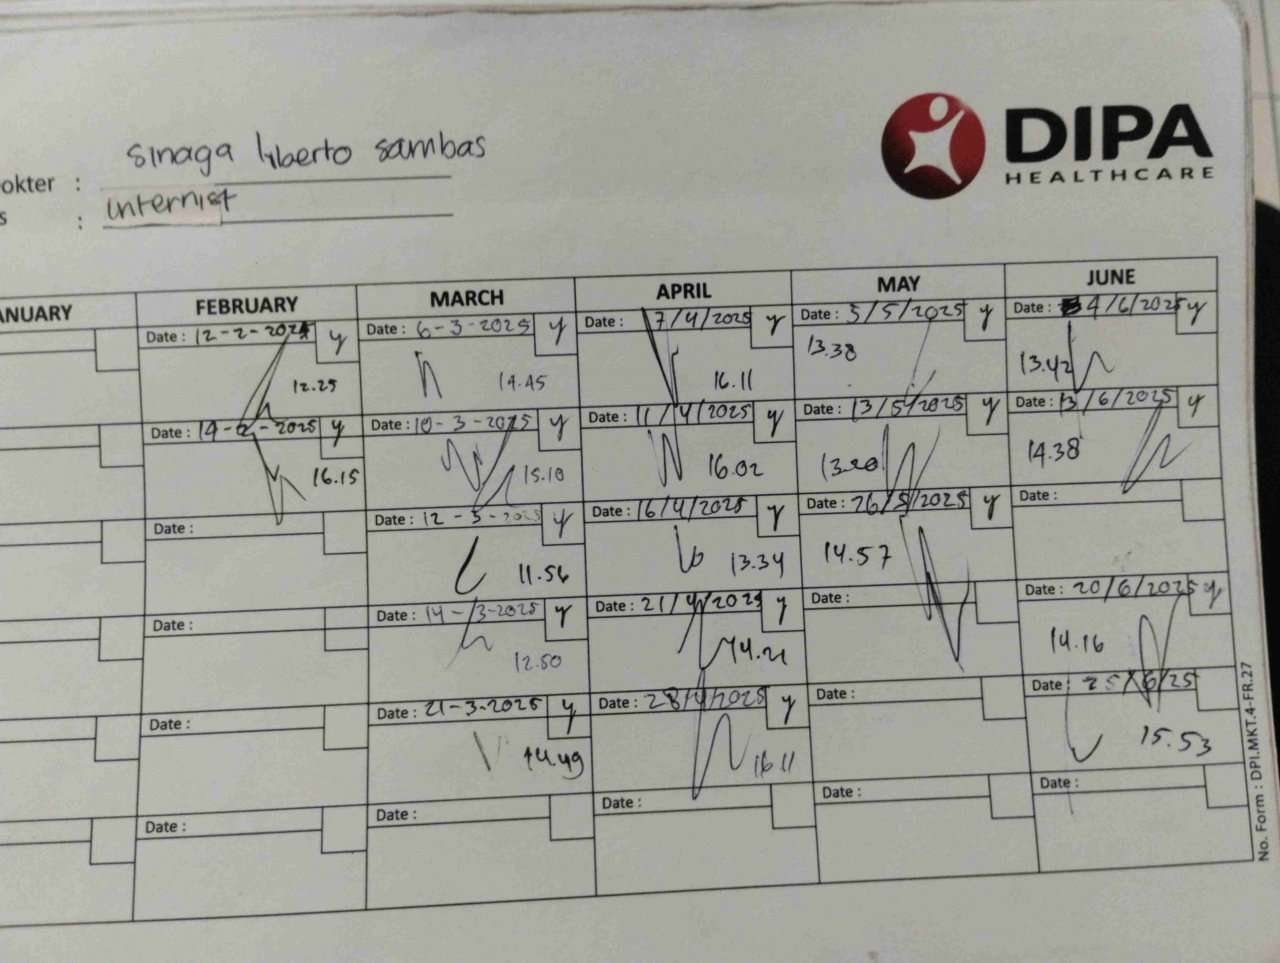 DIPA
HEALTHCARE
okter : Sinaga liberto sambas
s : internist
ANUARY FEBRUARY MARCH APRIL MAY JUNE
Date : 12-2-2025 y Date : 6-3-2025 y Date : 7/4/2025 y Date : 5/5/2025 y Date : 4/6/2025 y
12.25 14.45 16.11 13.38 13.42
Date : 19-2-2025 y Date : 10-3-2025 y Date : 11/4/2025 y Date : 13/5/2025 y Date : 13/6/2025 y
16.15 15.10 16.02 13.20 14.38
Date : Date : 12-3-2025 y Date : 16/4/2025 y Date : 26/5/2025 y Date :
11.56 13.34 14.57
Date : Date : 14-/3-2025 y Date : 21/4/2025 y Date : Date : 20/6/2025 y
12.50 14.21 14.16
Date : Date : 21-3-2025 y Date : 28/4/2025 y Date : Date : 25/6/25
14.49 16.11 15.53
Date : Date : Date : Date : Date :
No. Form : DPI.MKT.4-FR.27